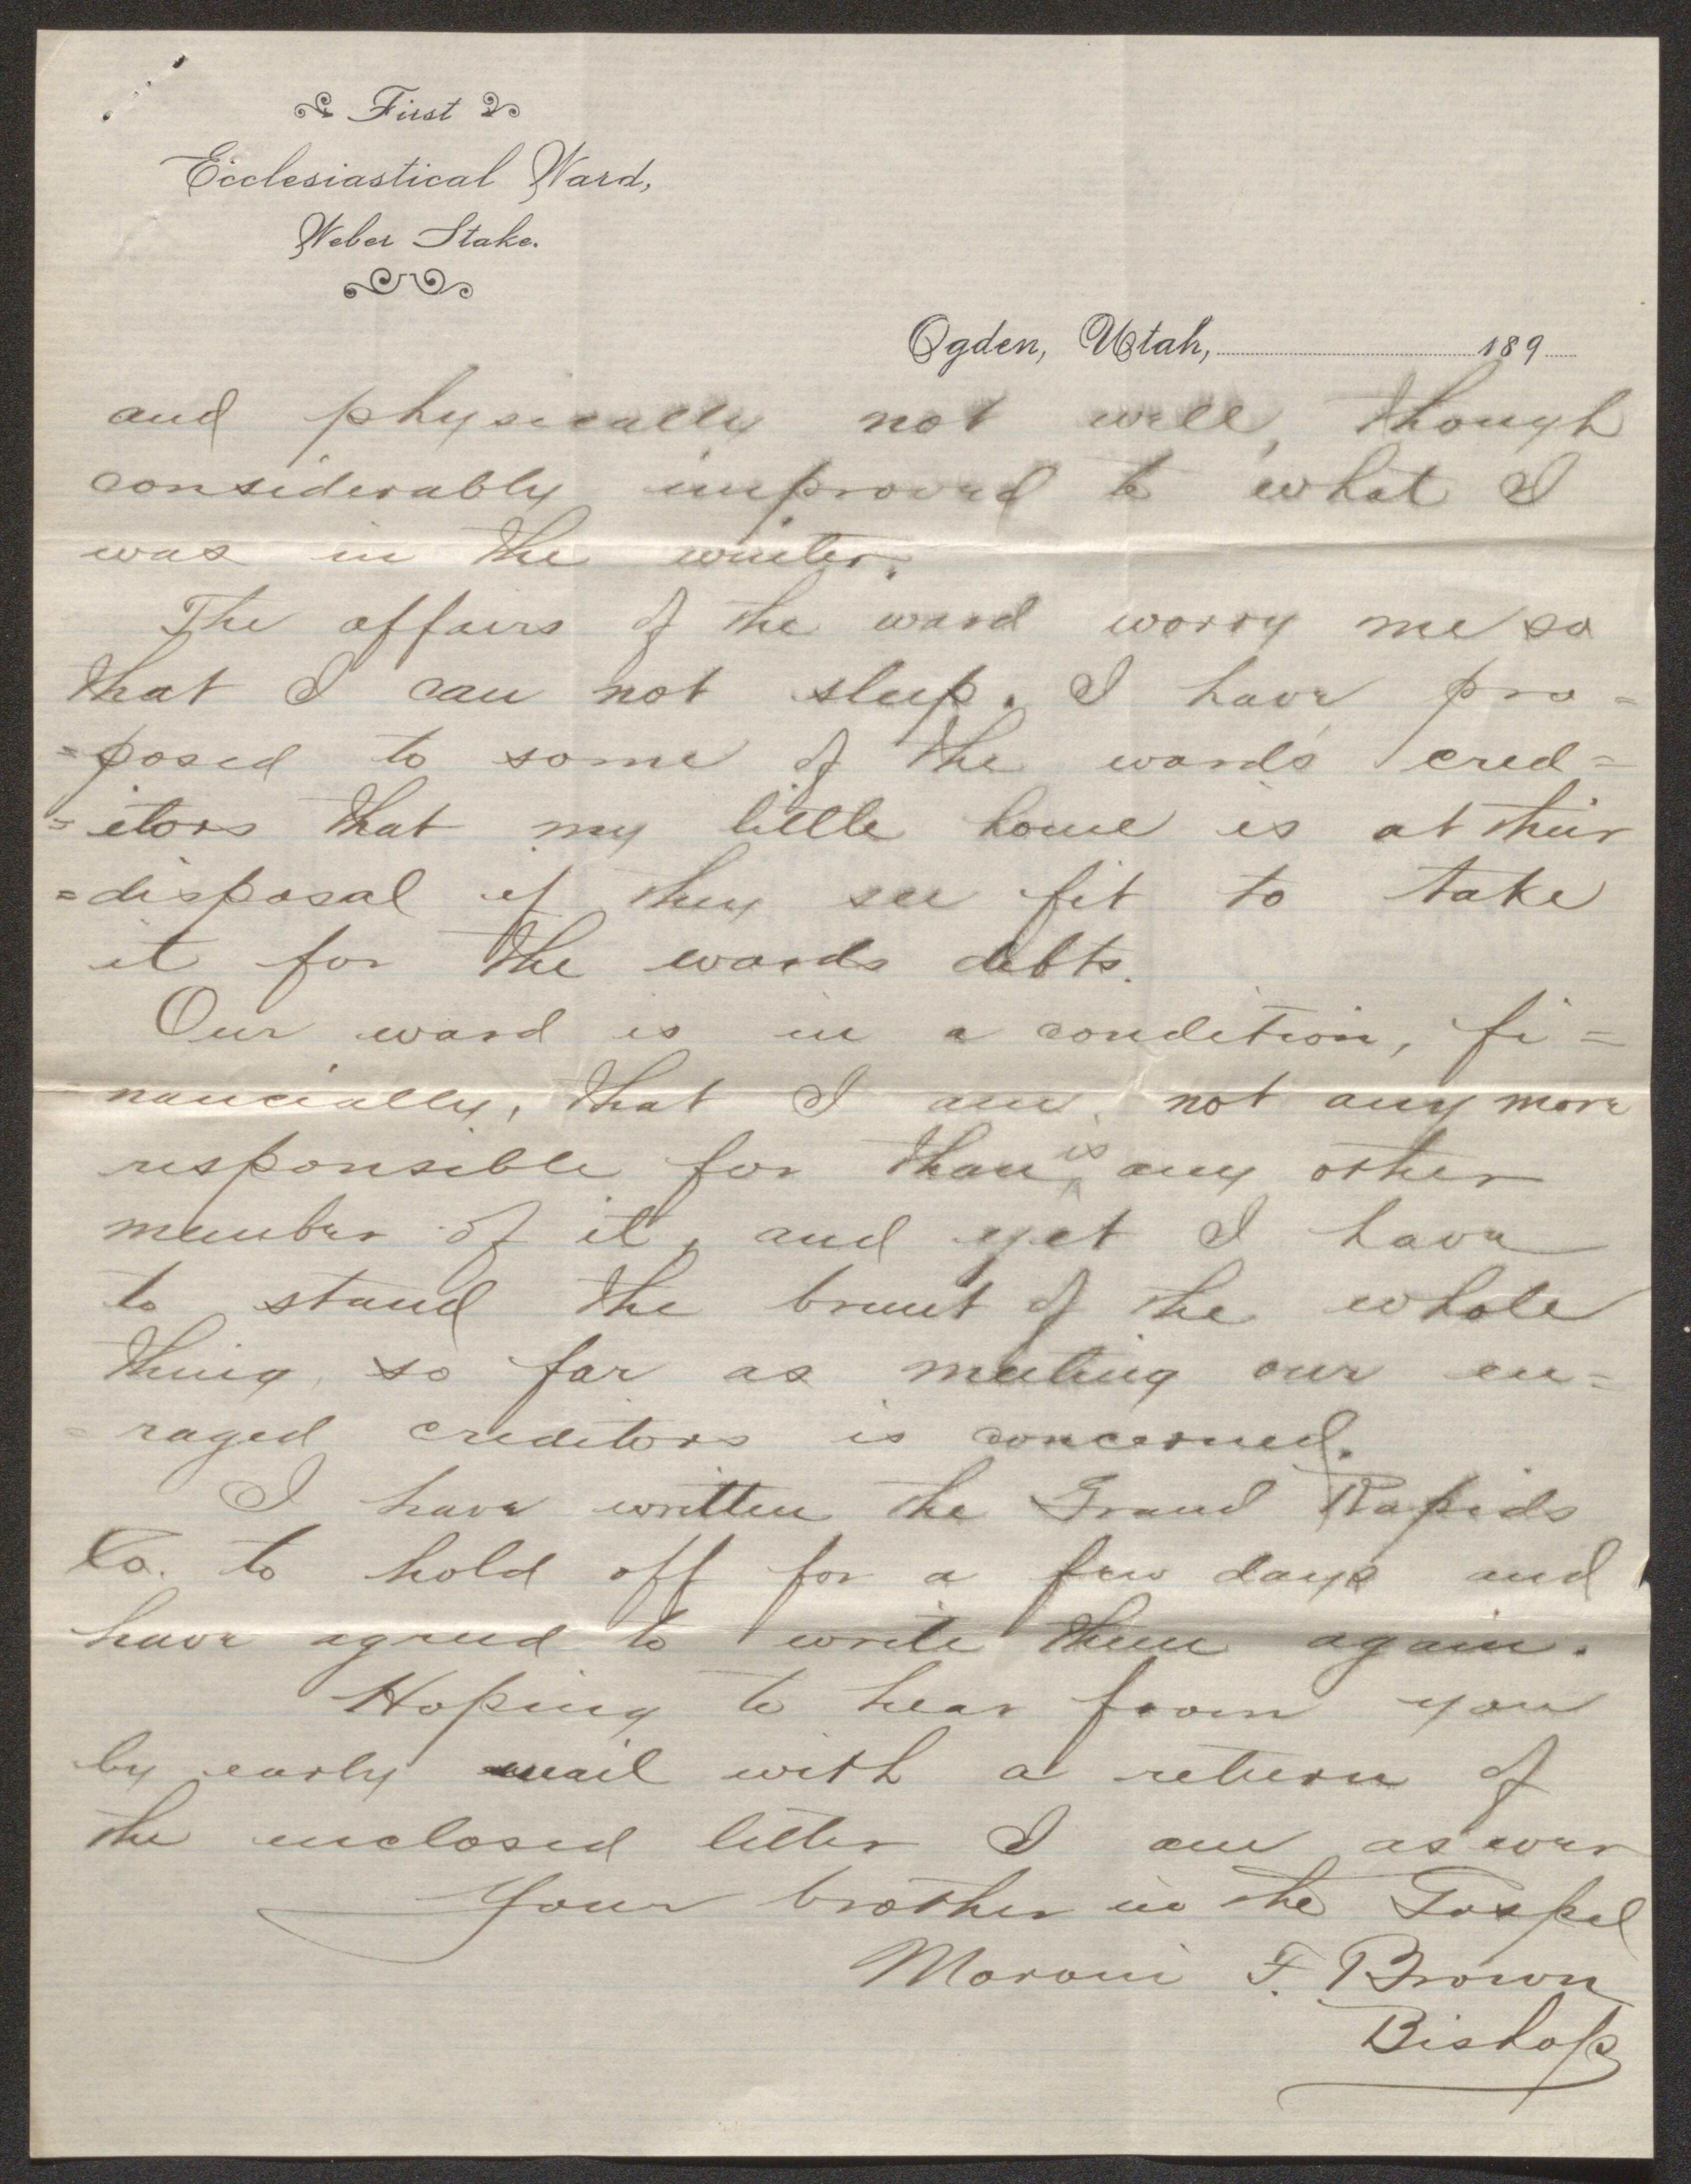 First
Ecclesiastical Ward,
Weber Stake.
Ogden, Utah, 189
and physically not well, though
considerably improved to what I
was in the winter.
The affairs of the ward worry me so
that I can not sleep. I have pro=
=posed to some of the ward's cred=
=itors that my little home is at their
=disposal if they see fit to take
it for the wards debts.
Our ward is in a condition, fi=
nancially, that I am, not any more
responsible for than is any other
member of it, and yet I have
to stand the brunt of the whole
thing, so far as meeting our en=
=raged creditors is concerned.
I have written the Grand Rapids
Co. to hold off for a few days and
have agreed to write them again.
Hoping to hear from you
by early mail with a return of
the enclosed letter I am as ever
Your brother in the Gospel
Moroni F. Brown
Bishop